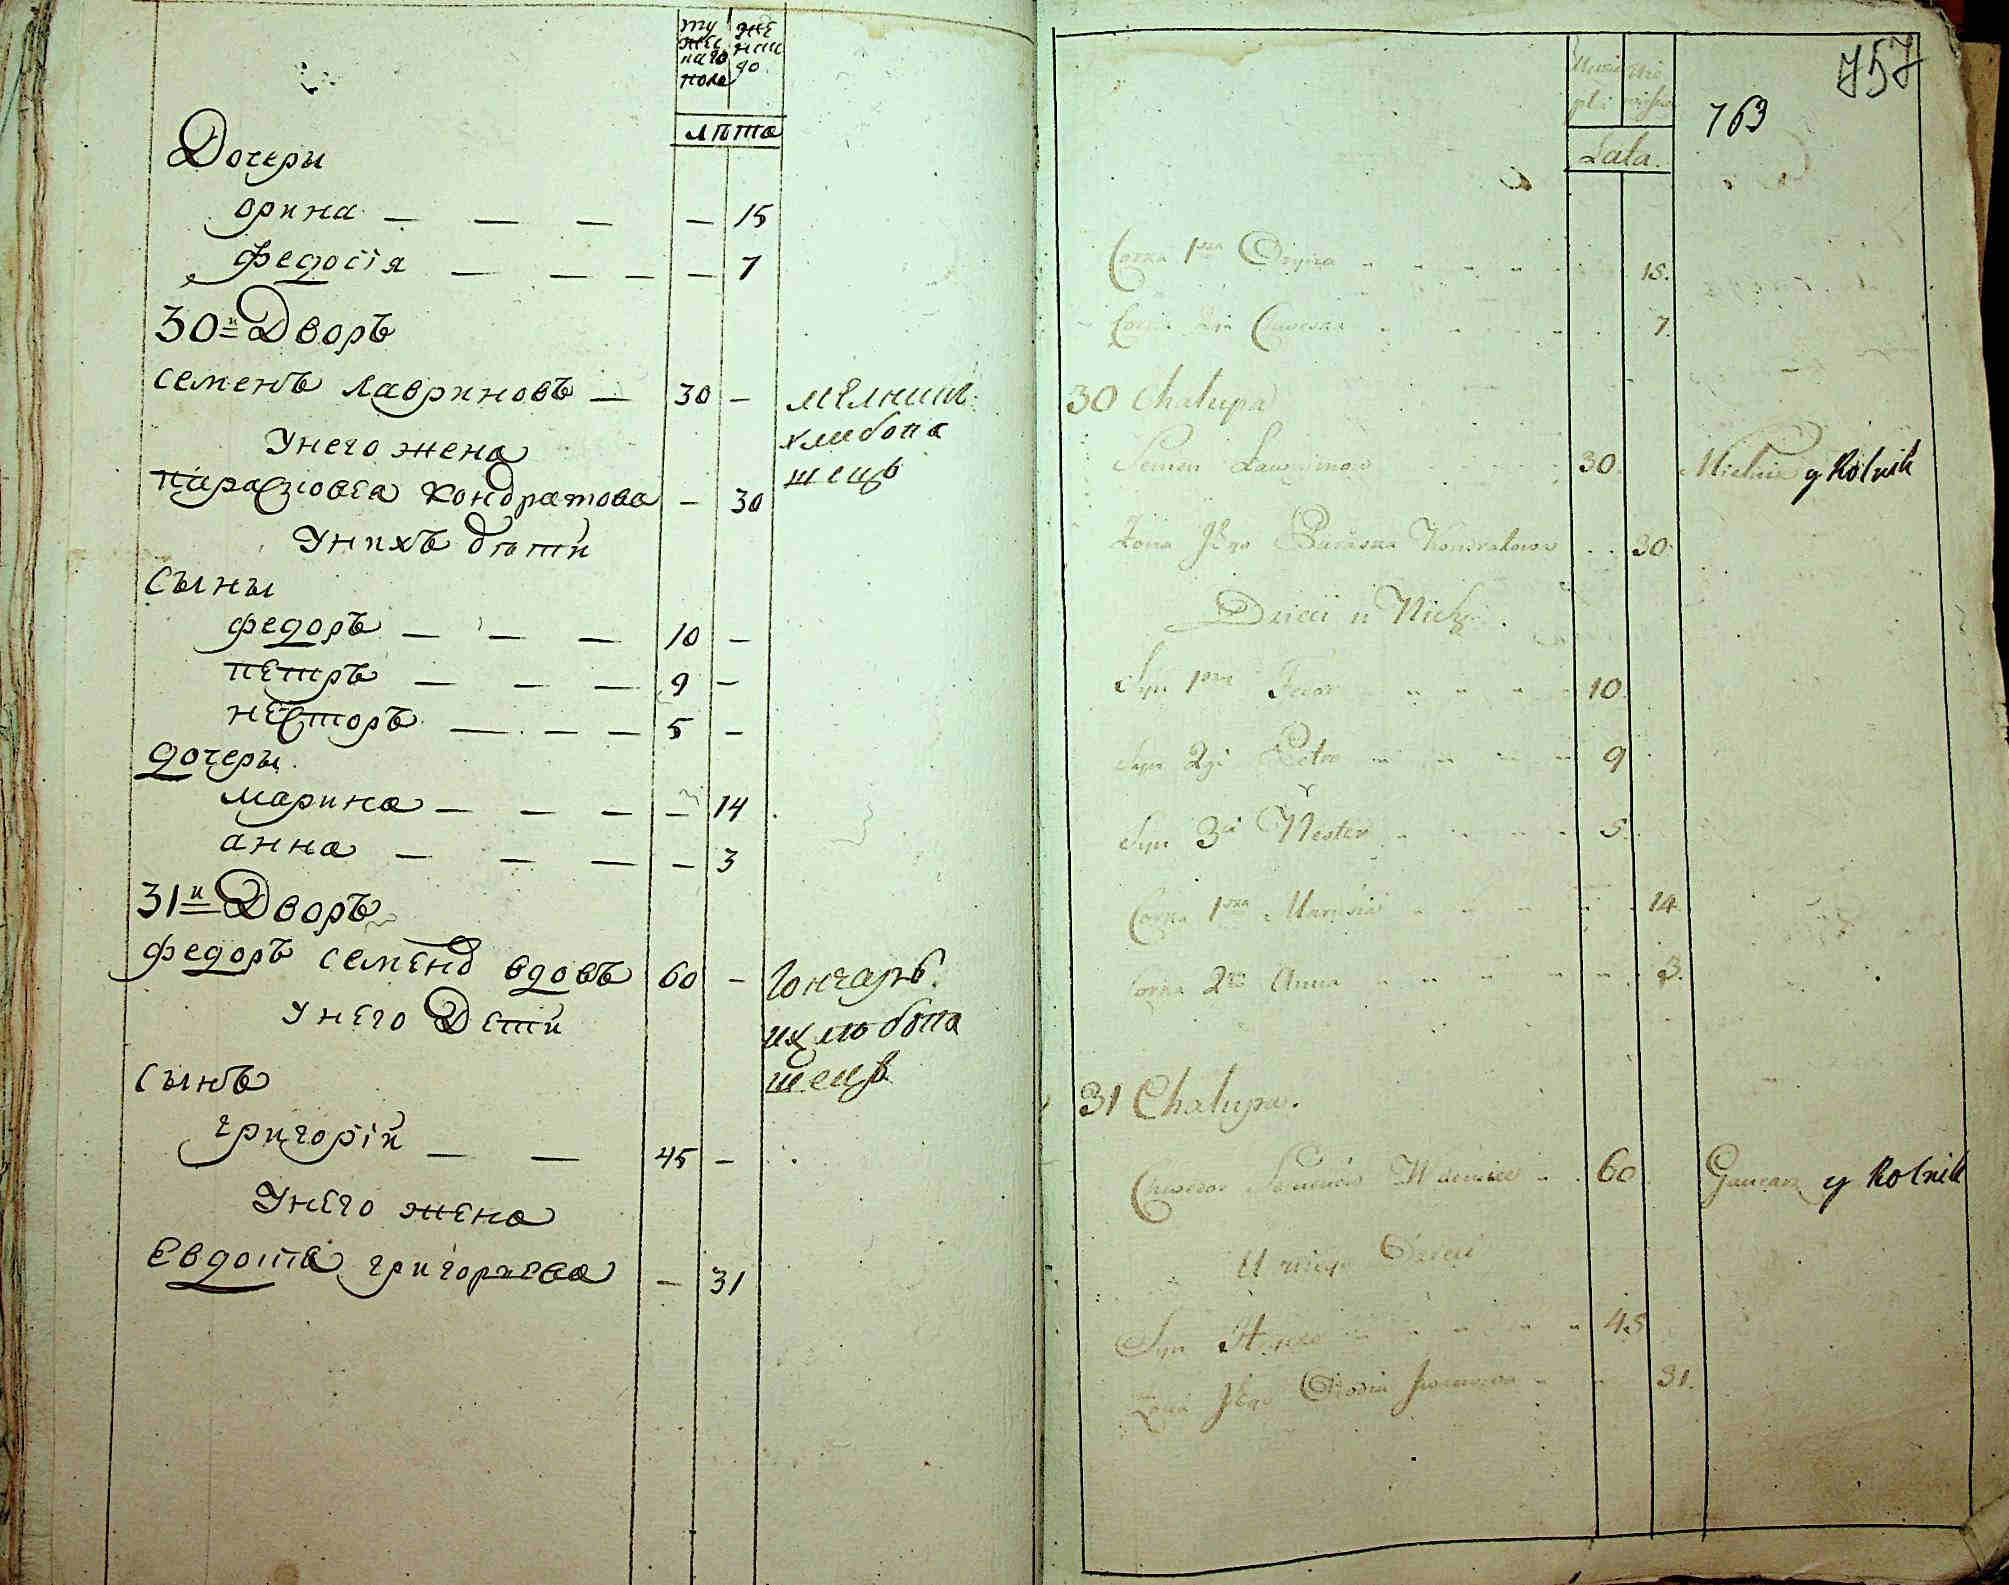 му
жес
наго
пола
же
нш
до
лѣта
Дочеры
орина — — — — 15
федосія — — — — 7
30й Дворъ
семенъ лавриновъ — 30 — мелникъ
хлибопа
шецъ
Унего жена
парасковея кондратова — 30
Унихъ дѣти
Сыны
федоръ — — — 10 —
петръ — — — 9 —
несторъ — — — 5 —
дочеры
марина — — — — 14
анна — — — — 3
31й Дворъ
федоръ семено вдовъ 60 — Гончаръ
ихлѣбопа
шецъ
Унего Дети
Сынъ
григорій — — 45 —
Унего жена
Евдокіа григорьева — 31
757
763
Lata.
Corka 1sza Oryna 15.
Corka 2ga 7.
30 Chalupa
Semen Lawrynow 30 Mielnik y Rolnik
Zona Jego Paraska Kondratowa 30.
Dzieci u Nich.
Syn 1szy Fedor 10
Syn 2gi Petro 9
Syn 3ci Nester 5.
Corka 1sza Marysia 14.
Corka 2ga Anna 3.
31 Chalupa.
Chwedor Semenow Wdowiec 60 Gancarz y Rolnik
U niego Dzieci
Syn Hryc 45
Zona Jego 31.